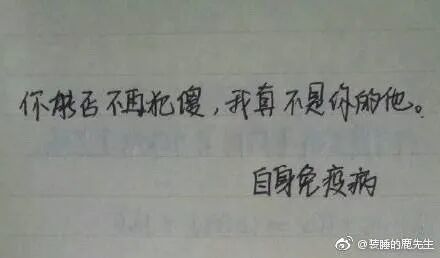 你能否不再犯傻，我真不是你的他。
自身免疫病
@装睡的鹿先生